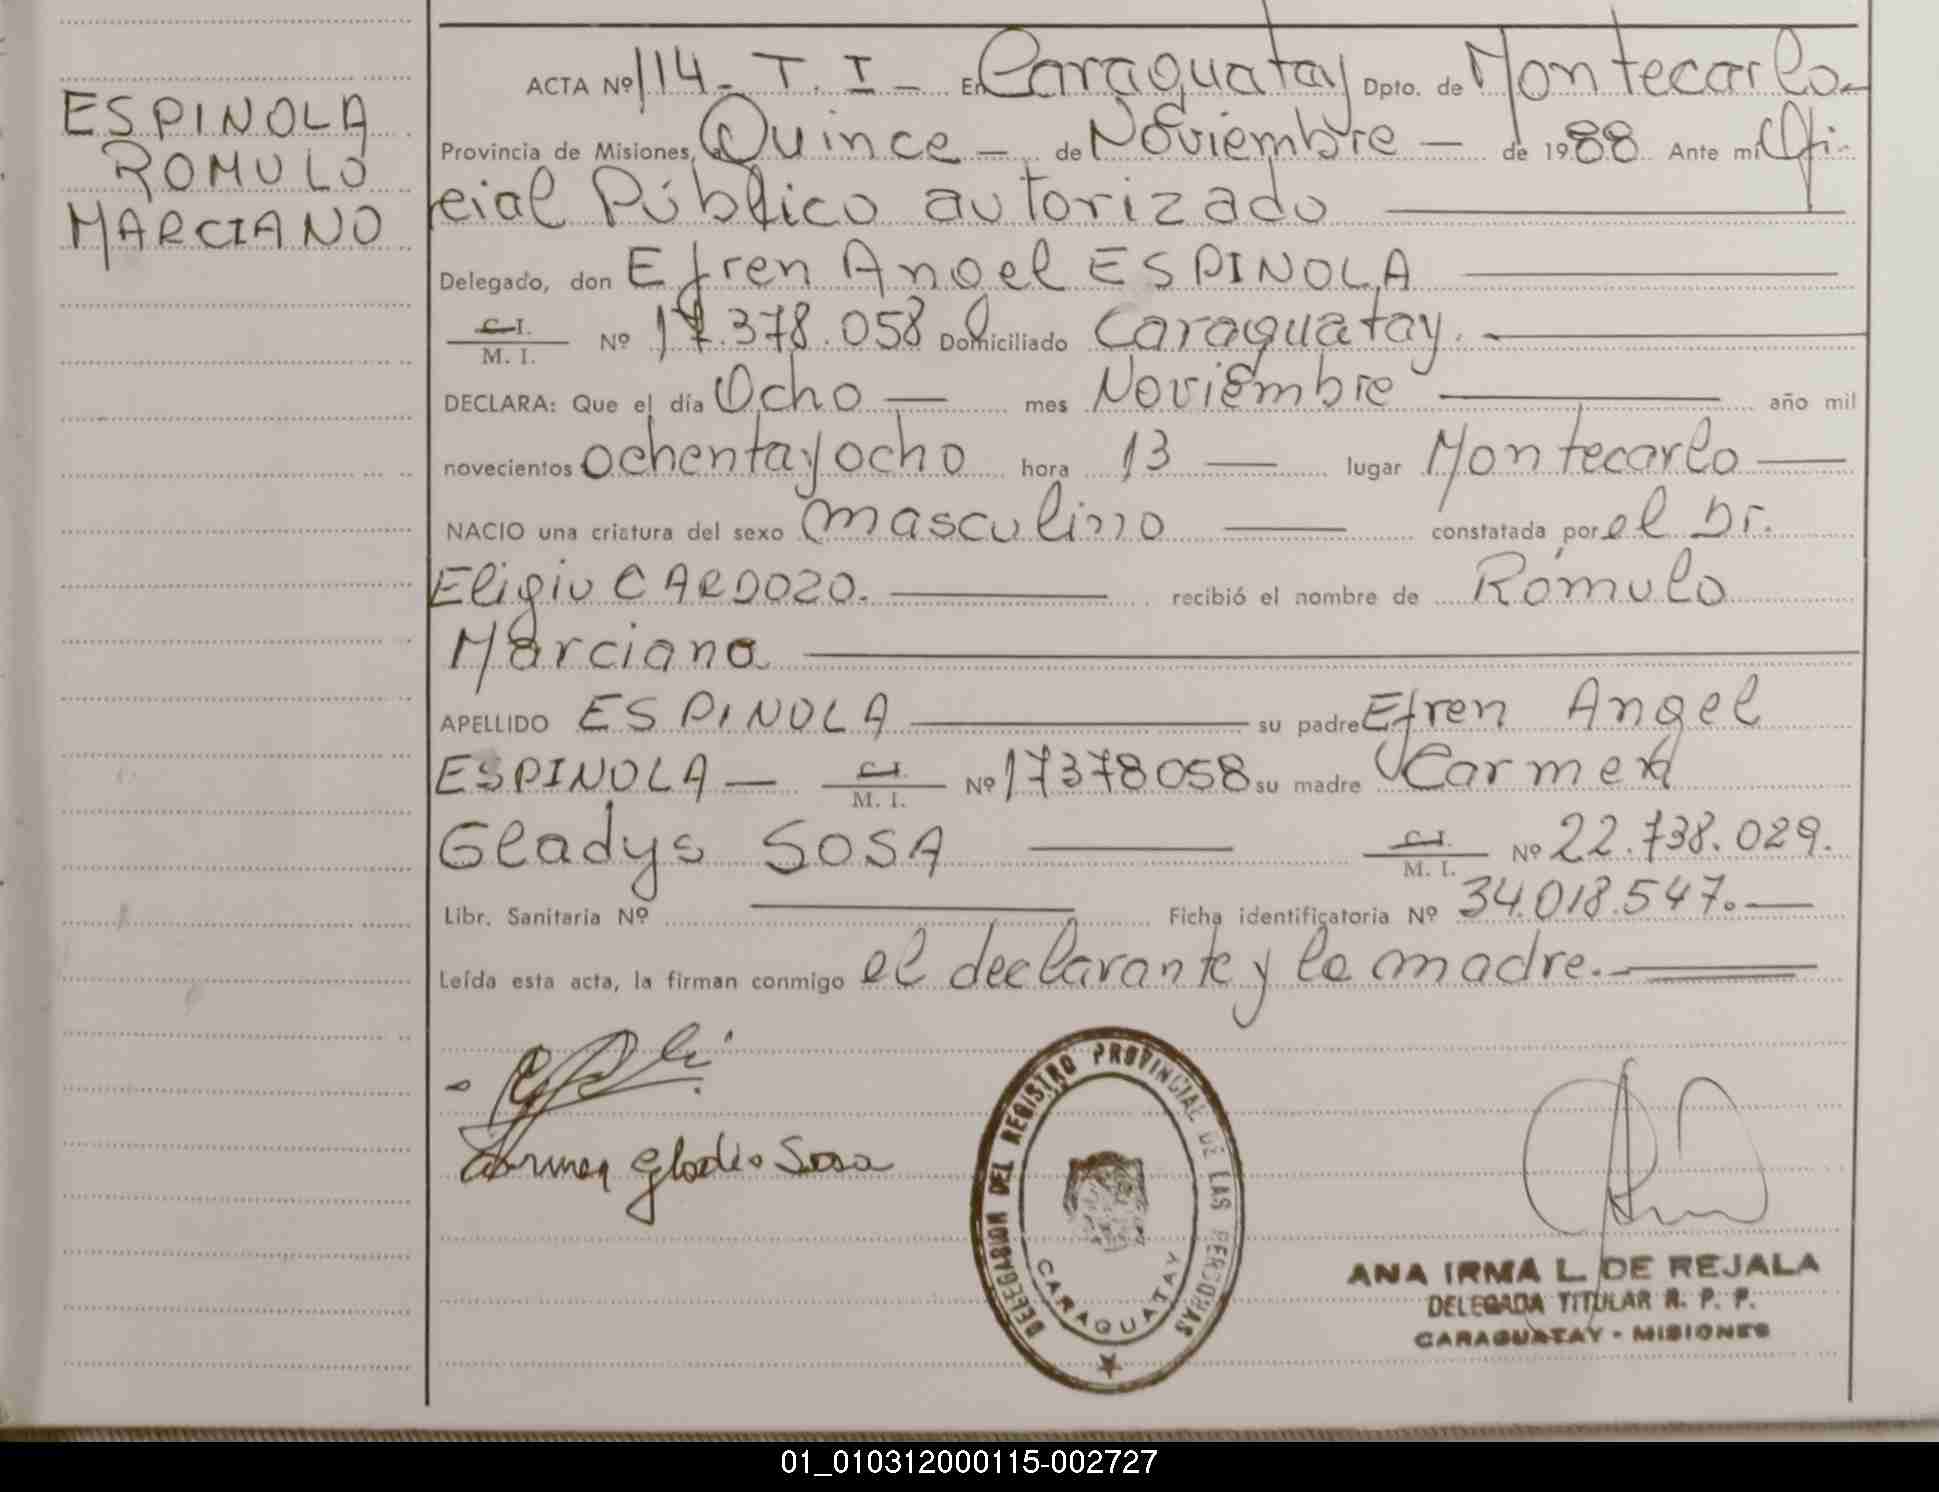 ESPINOLA
ROMULO
MARCIANO
ACTA Nº 114 - T. I - En Caraguatay Dpto. de Montecarlo-
Provincia de Misiones, a Quince - de Noviembre - de 1988 Ante mi Ofi-
cial Público autorizado
Delegado, don Efren Angel ESPINOLA
C.I.
M. I. Nº 17.378.058 Domiciliado Caraguatay.
DECLARA: Que el día Ocho - mes Noviembre año mil
novecientos ochenta y ocho hora 13 - lugar Montecarlo -
NACIO una criatura del sexo masculino constatada por el Dr.
Eligio CARDOZO. recibió el nombre de Rómulo
Marciano
APELLIDO ESPINOLA su padre Efren Angel
ESPINOLA - C.I.
M. I. Nº 17378058 su madre Carmen
Gladys SOSA C.I.
M. I. Nº 22.738.029.
Libr. Sanitaria Nº Ficha identificatoria Nº 34.018.547.-
Leída esta acta, la firman conmigo el declarante y la madre.-
Carmen Gladis Sosa
DELEGACION DEL REGISTRO PROVINCIAL DE LAS PERSONAS
CARAGUATAY
ANA IRMA L. DE REJALA
DELEGADA TITULAR R. P. P.
CARAGUATAY - MISIONES
01_010312000115-002727